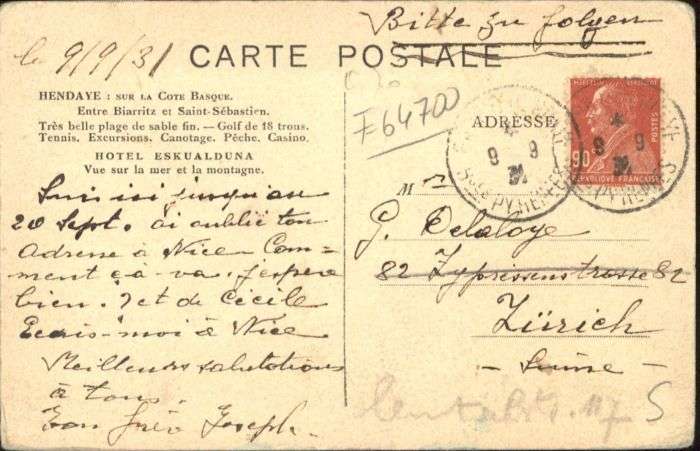 Bitte zu folgen
le 9/9/31
CARTE POSTALE
HENDAYE : SUR LA COTE BASQUE.
Entre Biarritz et Saint-Sébastien.
Très belle plage de sable fin. — Golf de 18 trous.
Tennis. Excursions. Canotage. Pêche. Casino.
HOTEL ESKUALDUNA
Vue sur la mer et la montagne.
F 64700
ADRESSE
9 9
31
Bses PYRENEES
9 9
31
PYRENEES
POSTES
90
REPUBLIQUE FRANÇAISE
Suis ici jusqu'au
20 Sept. ai oublié ton
Adresse à Nice Com-
ment ça va. J'espère
bien. Et de Cécile
Ecris-moi à Nice
Meilleures salutations
à tous.
Ton frère Joseph.
Mr
G. Delaloye
82 Zypressenstrasse 82
Zürich
- Suisse -
5